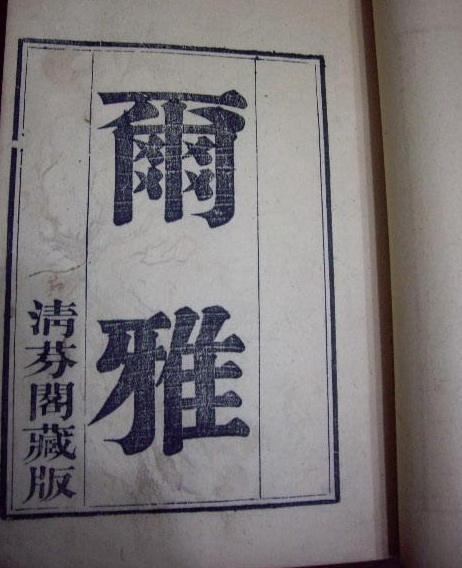 爾雅
清芬閣藏版